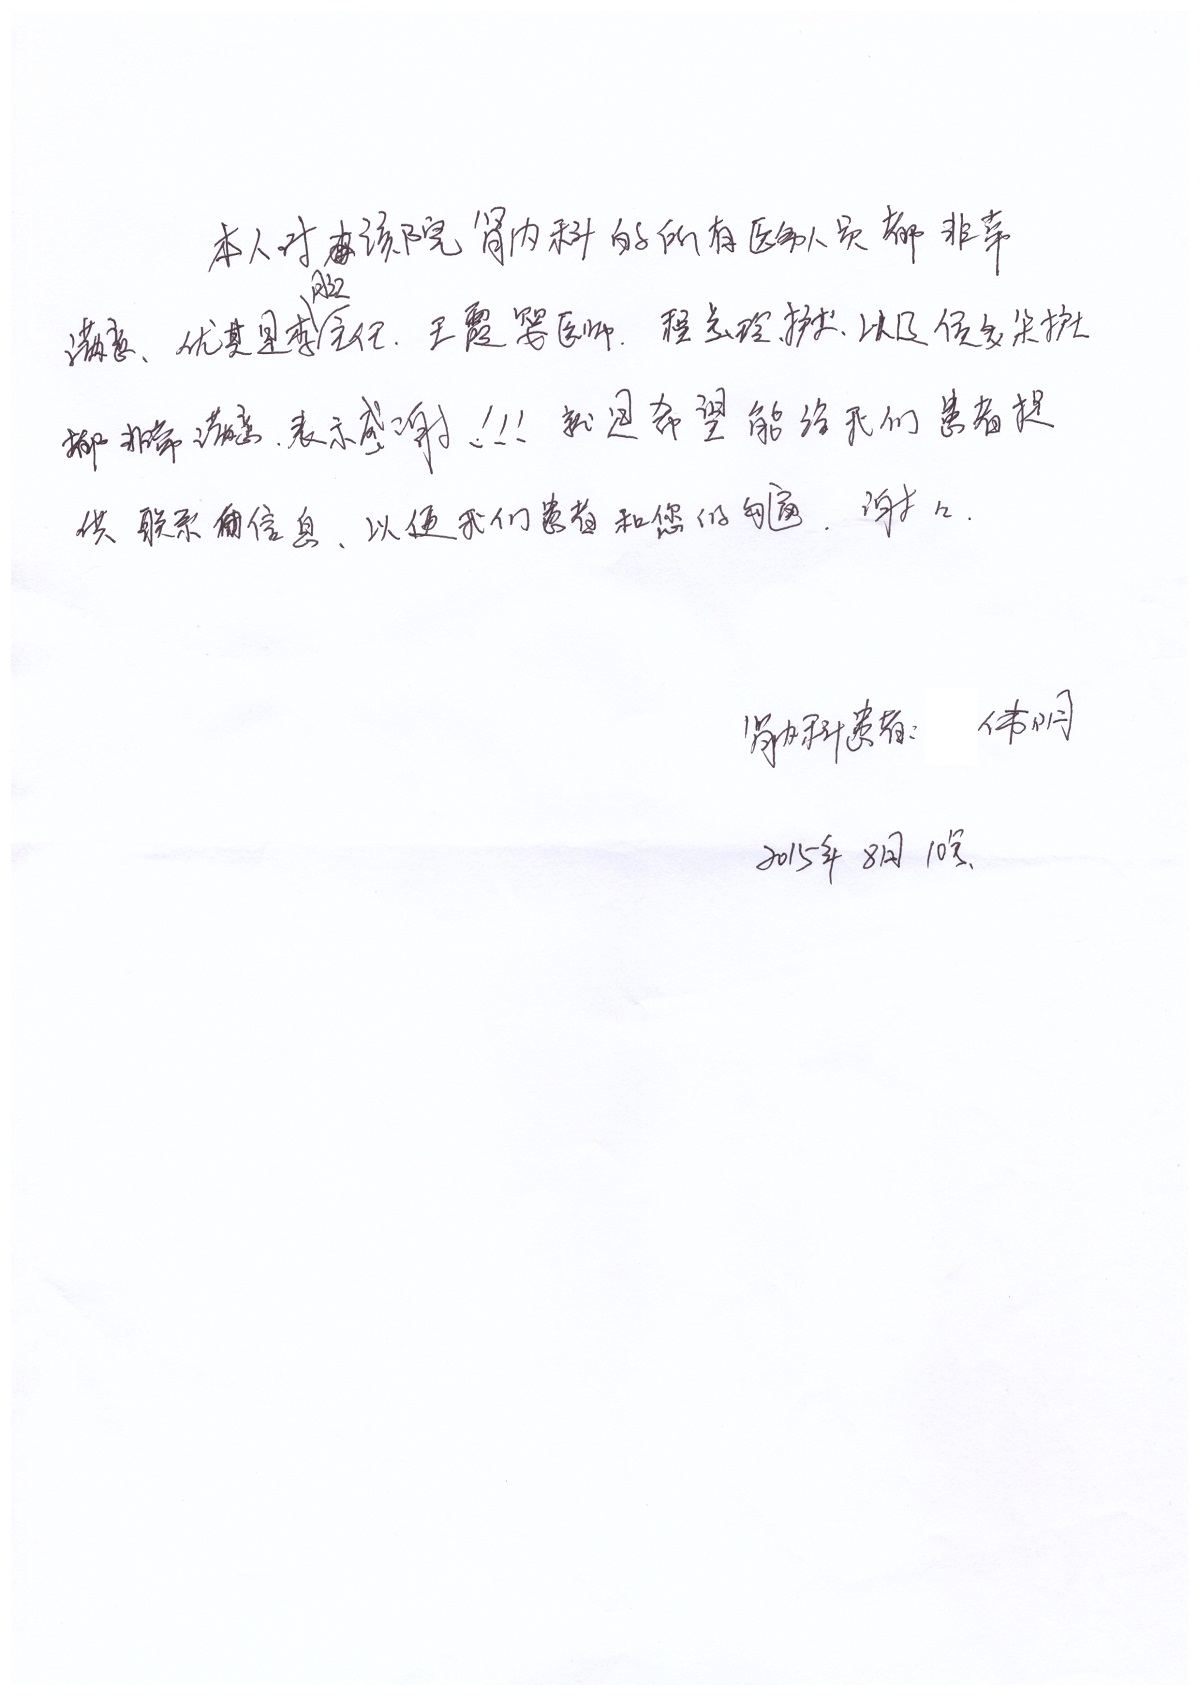 本人对该院肾内科的所有医务人员都非常
满意、优其是李主任.王霞医师.程护士、以及侯护士
都非常满意.表示感谢!!!就是希望能给我们患者提
供联系信息、以便我们患者和您们沟通.谢谢.
肾内科患者: 伟明
2015年8月10号.